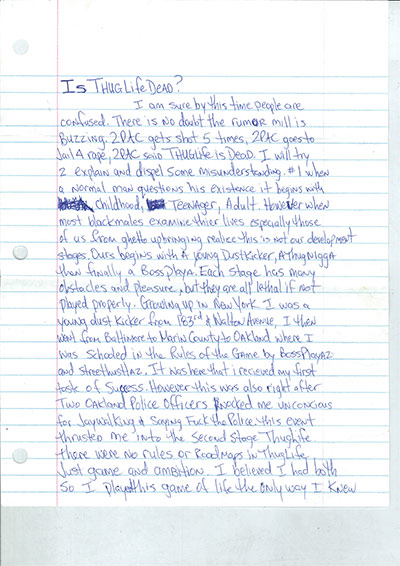 Is THUG Life DEAD?
I am sure by this time people are
confused. There is no doubt the rumor mill is
Buzzing. 2PAC gets shot 5 times, 2PAC goes to
Jail 4 rape, 2PAC said THUGLife is DeaD. I will try
2 explain and dispel some misunderstanding. #1 when
a normal man questions his existence it begins with
Childhood, Teenager, Adult. However when
most blackmales examine thier lives especially those
of us from ghetto upbringing realize this is not our development
stages. Ours begins with A young DustKicker, A Thug Nigga
then finally a Boss Playa. Each stage has many
obstacles and pleasure, but they are all lethal if not
played properly. Growing up in New York I was a
young dust Kicker from 183rd & Walton Avenue, I then
went from Baltimore to Marin County to Oakland where I
was Schooled in the Rules of the Game by BossPlayaz
and streethustlaz. It was here that i recieved my first
taste of Sucess. However this was also right after
Two Oakland Police Officers Knocked me unconxious
for Jaywalking & Saying Fuck the Police. this event
thrusted me into the Second Stage Thuglife.
there were no rules or Roadmaps in Thug Life
Just game and ambition. I believed I had both
So I played this game of life the only way I Knew